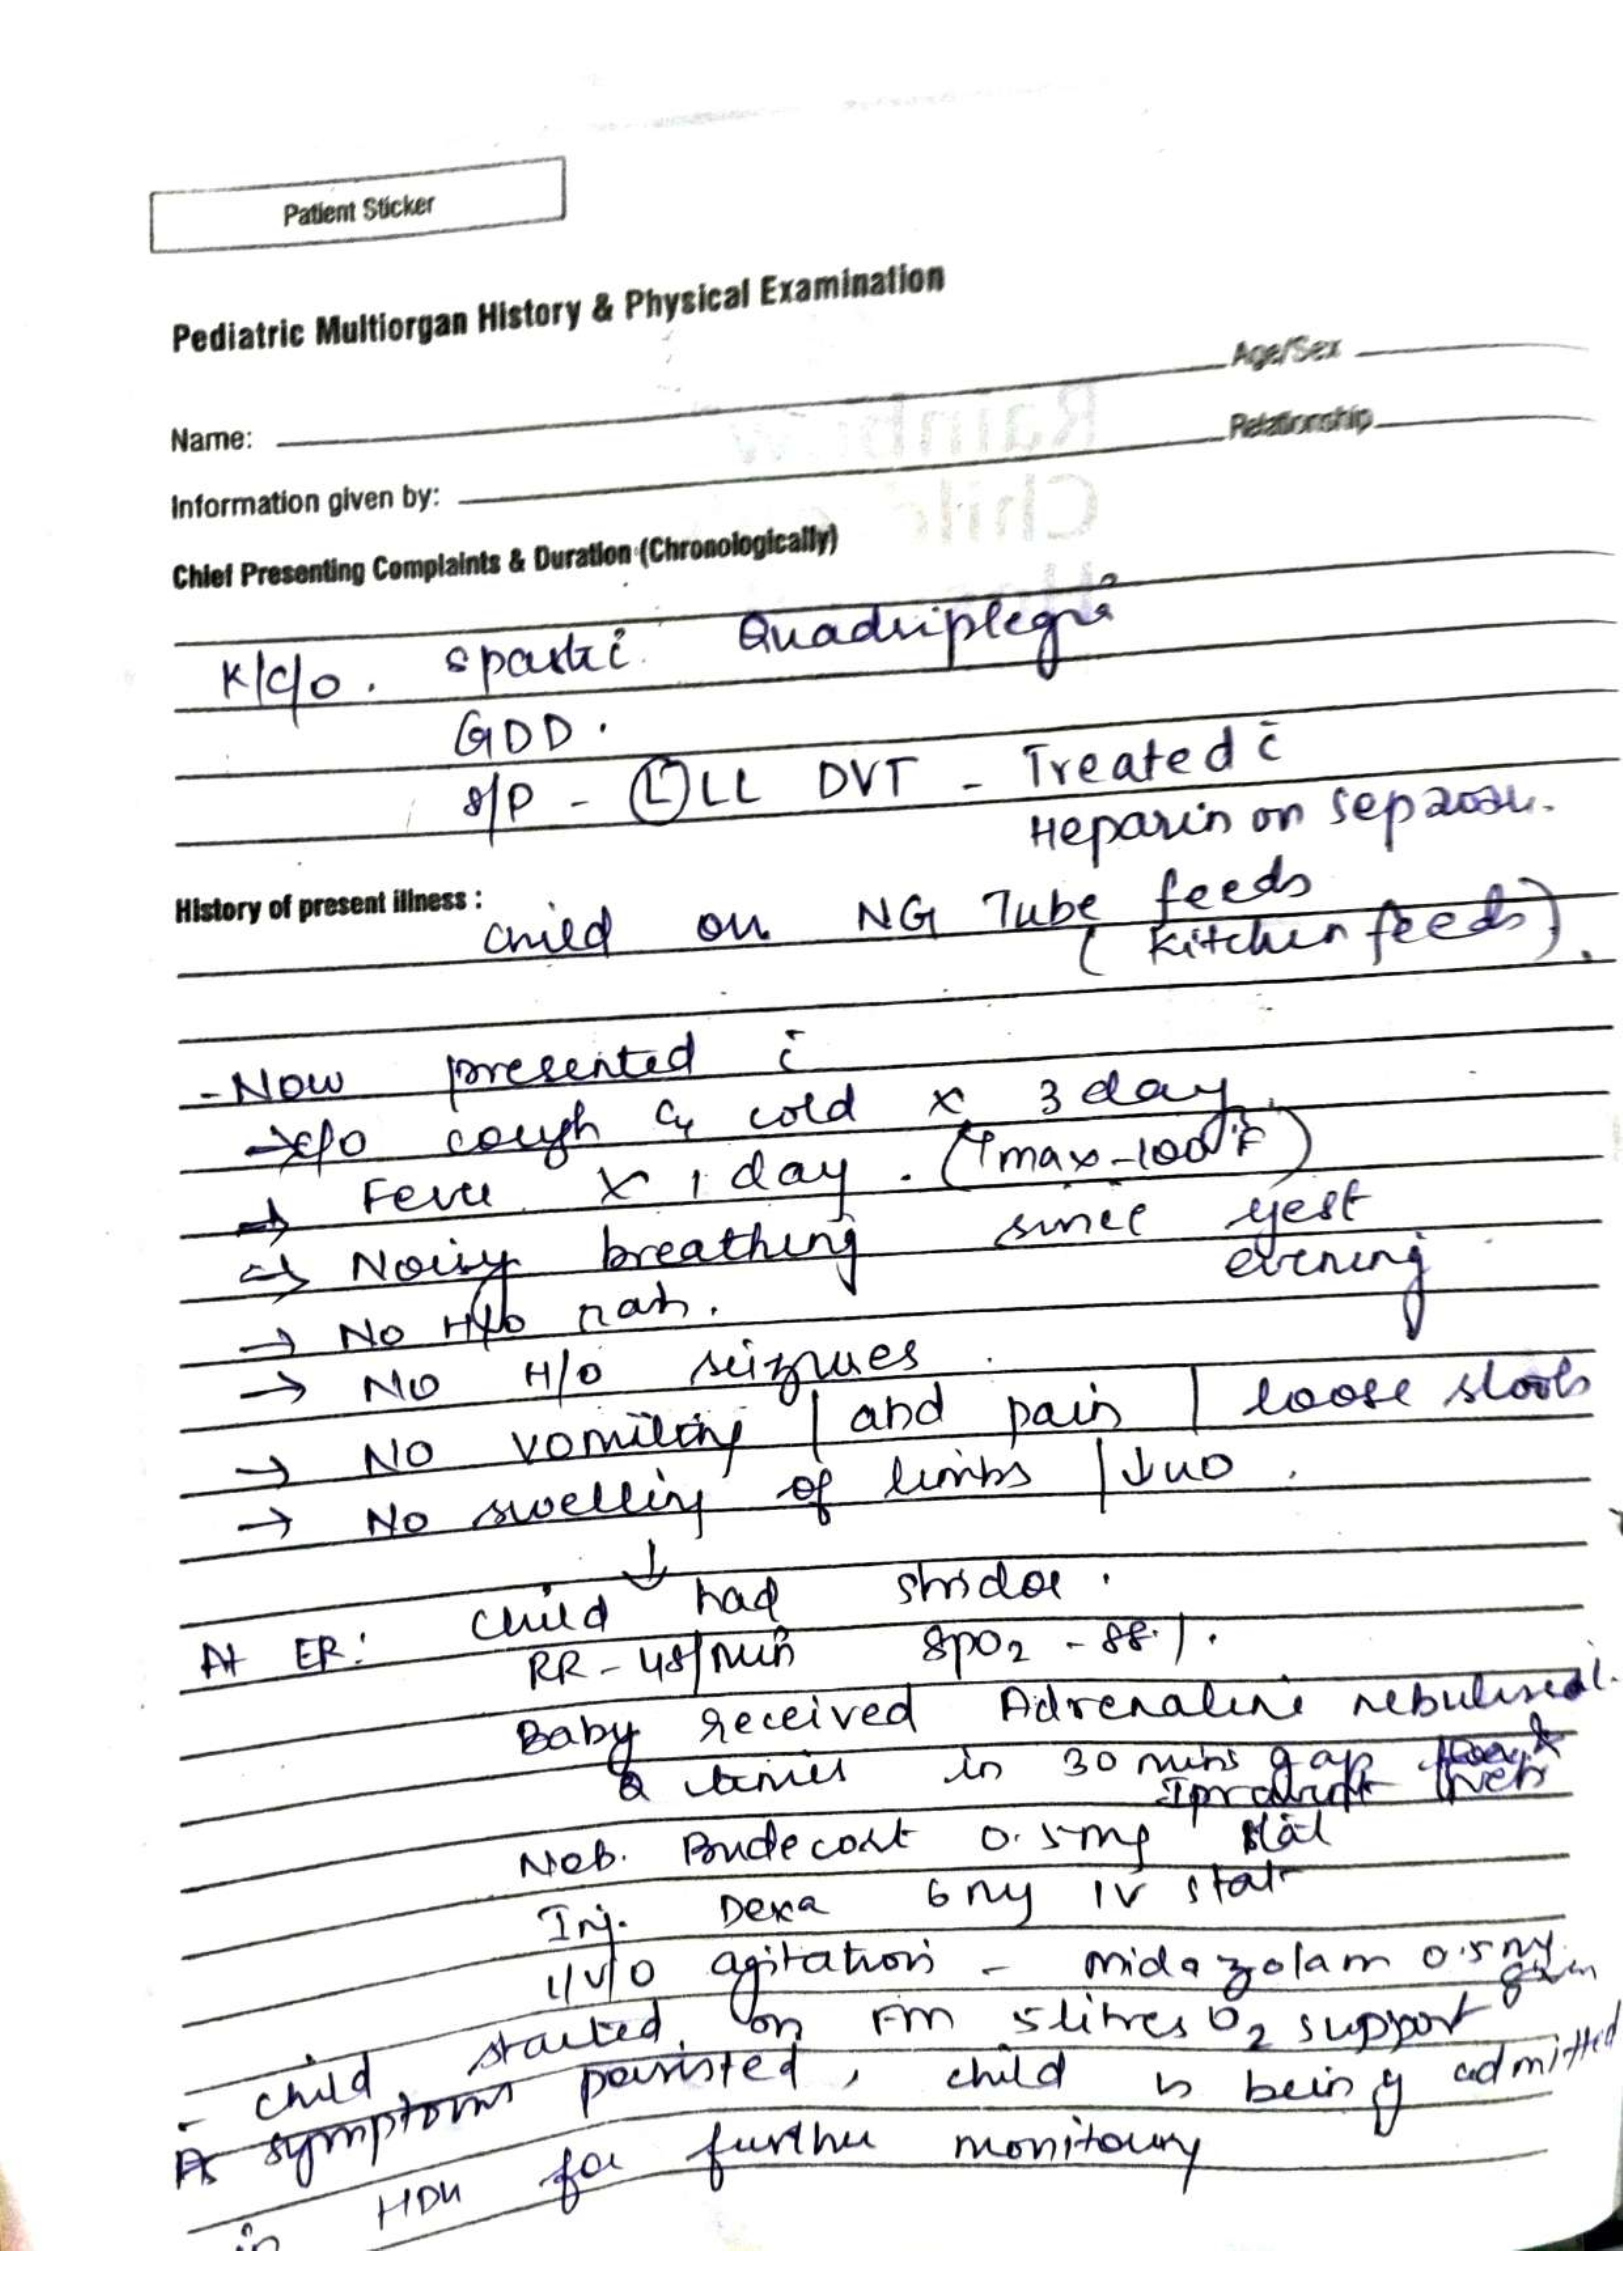 Patient Sticker
Pediatric Multiorgan History & Physical Examination
Name: Age/Sex
Information given by: Relationship
Chief Presenting Complaints & Duration (Chronologically)
K/c/o. spastic Quadriplegia
GDD.
s/p - (L) LL DVT - Treated c̄
Heparin on Sep
History of present illness :
child on NG Tube feeds
( Kitchen feeds).
- Now presented c̄
→ c/o cough & cold x 3 day.
→ Fever x 1 day. (Tmax-100°F)
→ Noisy breathing since yest
evening
→ No H/o rash.
→ No H/o seizures.
→ No vomiting | abd pain | loose stools
→ No swelling of limbs | ↓ u o.
↓
At ER: child had stridor.
RR - 48/min SpO2 - 88%.
Baby received Adrenaline nebulised.
2 times in 30 mins gap
Ipravent Neb
Neb. Budecort 0.5mg stat
Inj. Dexa 6 mg IV stat
I/v/o agitation - midazolam 0.5 mg
given
- child started on FM 5 litres O2 support
As symptoms persisted, child is being admitted
in HDU for further monitoring